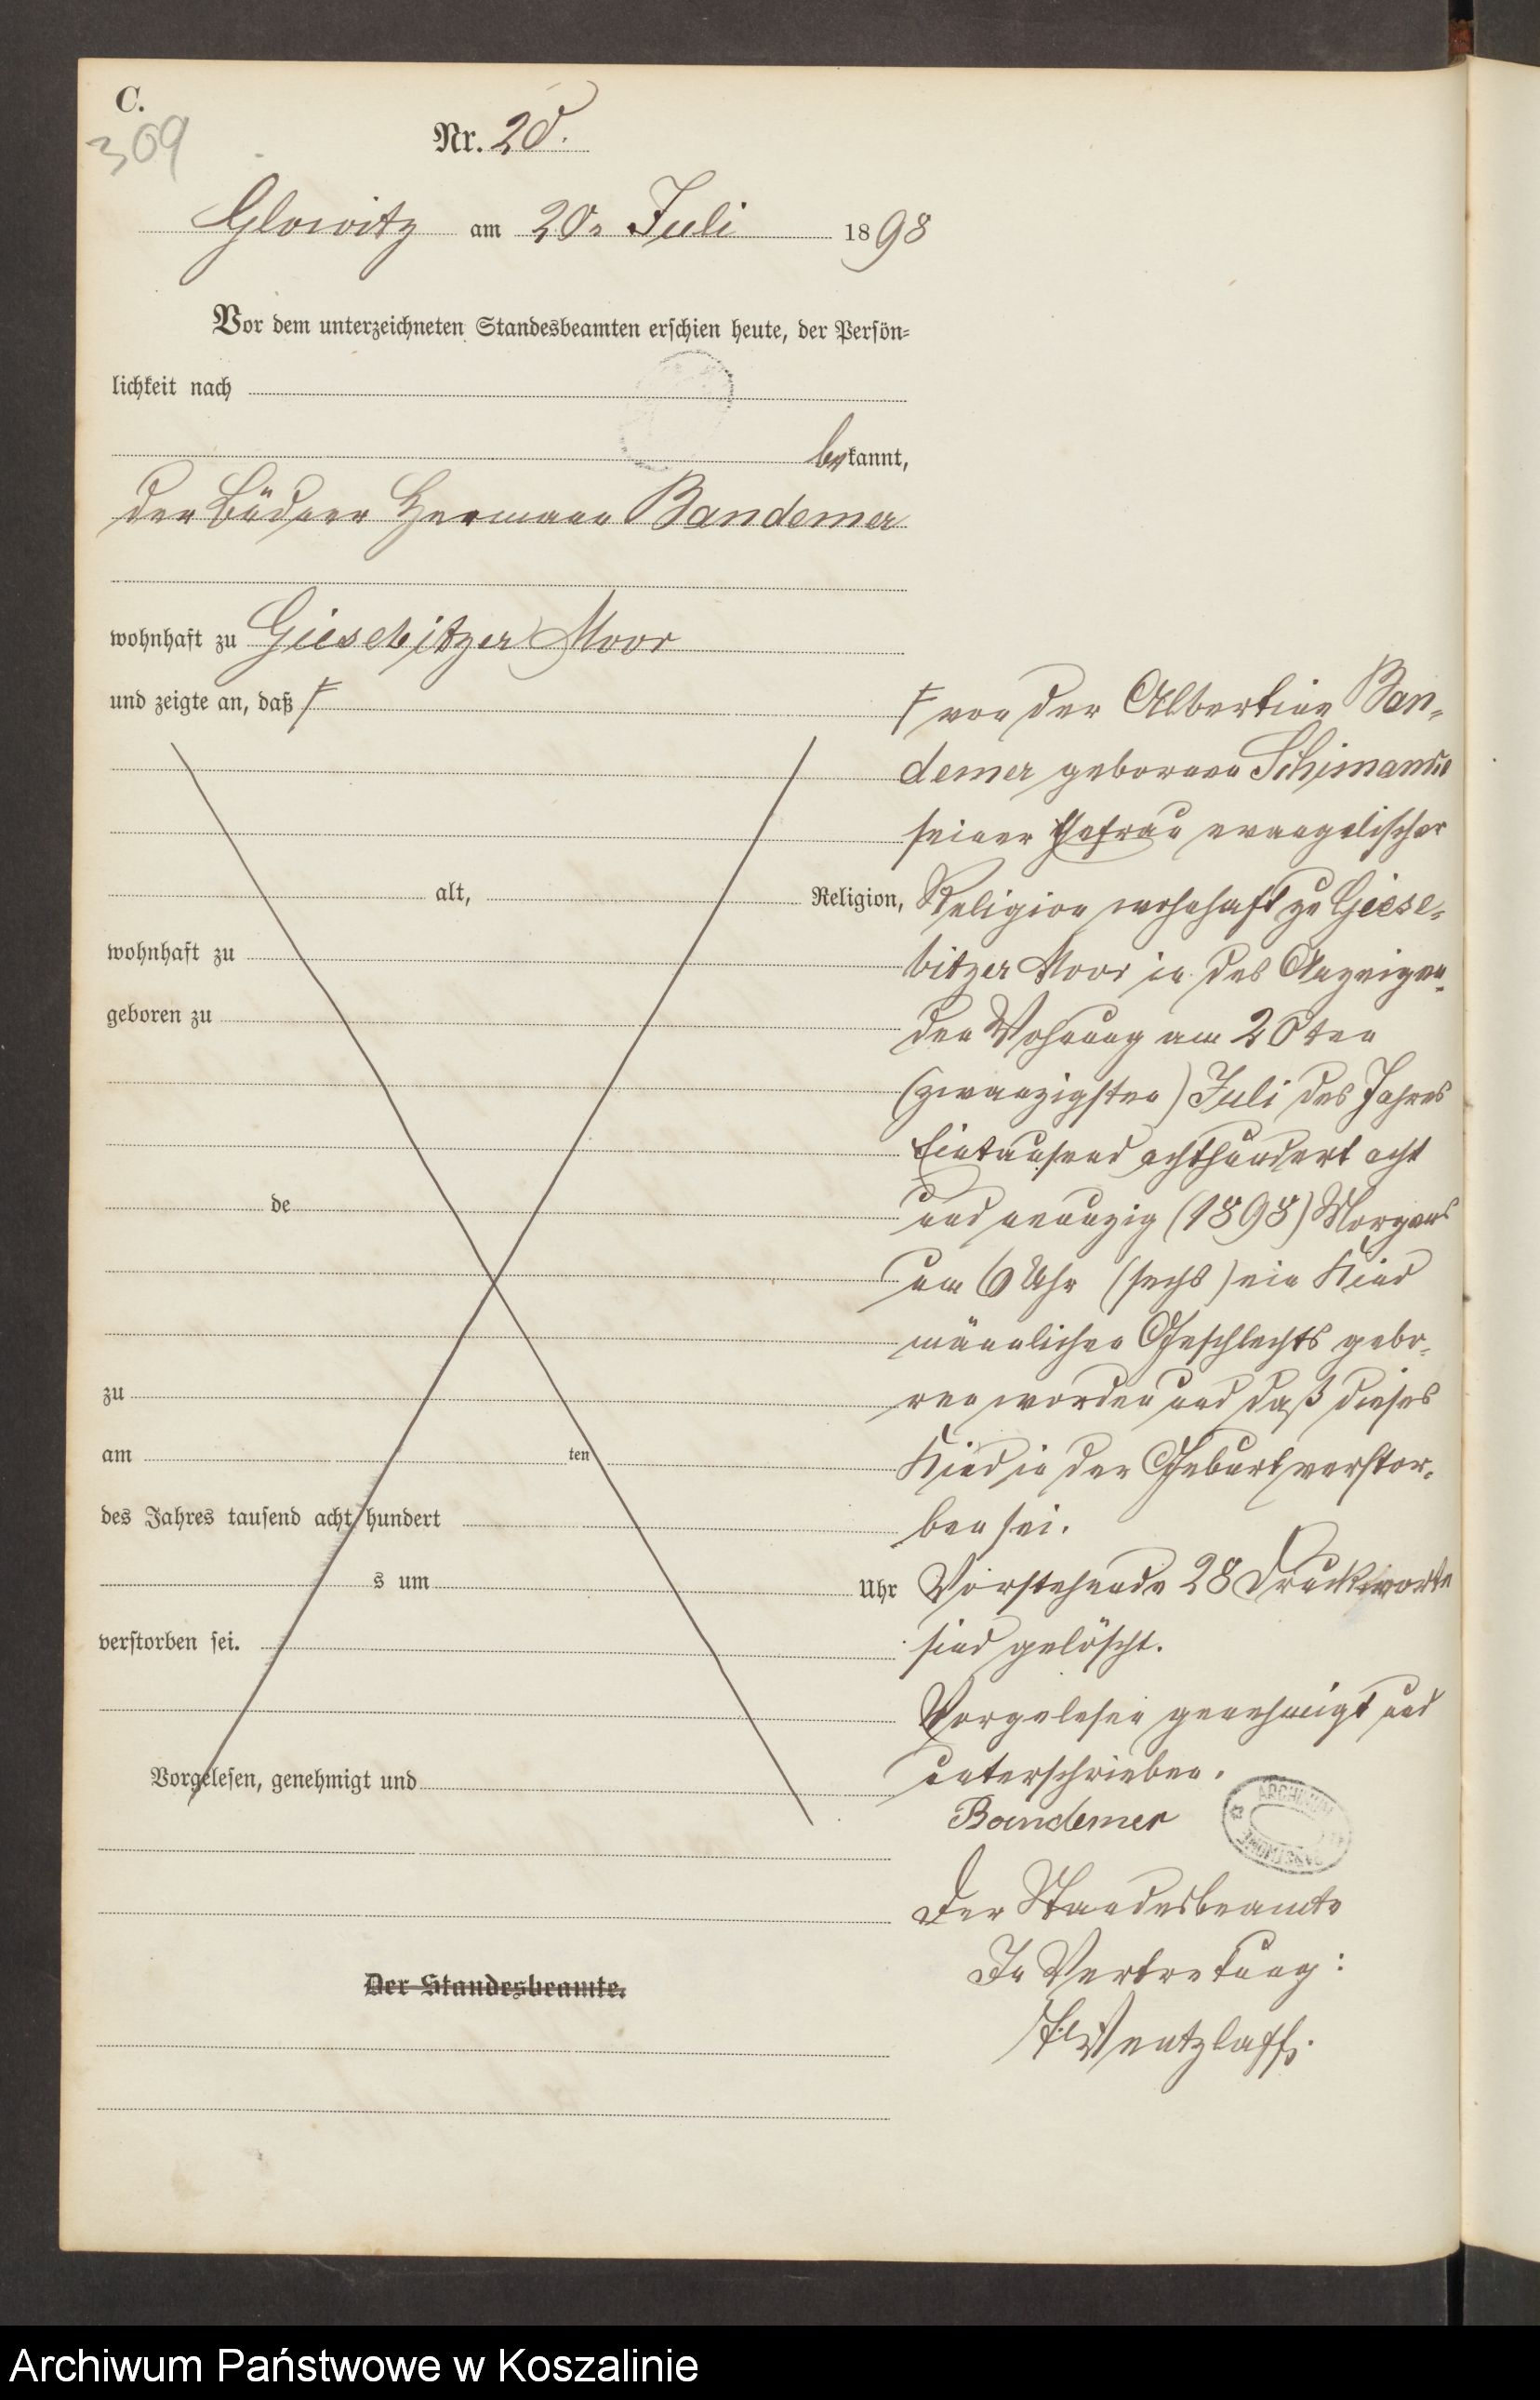 C.
309
Nr. 20.
Glowitz am 20. Juli 1898
Vor dem unterzeichneten Standesbeamten erschien heute, der Persön=
lichkeit nach
bekannt,
der Büdner Hermann Bandemer
wohnhaft zu Giesebitzer Moor
und zeigte an, daß
von der Albertine Ban-
demer geborenen
seiner Ehefrau evangelischer
alt, Religion, Religion wohnhaft zu Giese-
wohnhaft zu bitzer Moor in des Anzeigen-
geboren zu den Wohnung am 20ten
(zwanzigsten) Juli des Jahres
Eintausend achthundert acht
de und neunzig (1898) Morgens
um 6 Uhr (sechs) ein Kind
männlichen Geschlechts gebo-
zu ren worden und daß dieses
am ten Kind in der Geburt verstor-
des Jahres tausend acht hundert ben sei.
s um Uhr Vorstehende 28 Druckworte
verstorben sei. sind gelöscht.
Vorgelesen genehmigt und
Vorgelesen, genehmigt und unterschrieben.
Bandemer
ARCHIWUM
Der Standesbeamte
Der Standesbeamte.
In Vertretung:
Wentzlaff.
Archiwum Państwowe w Koszalinie